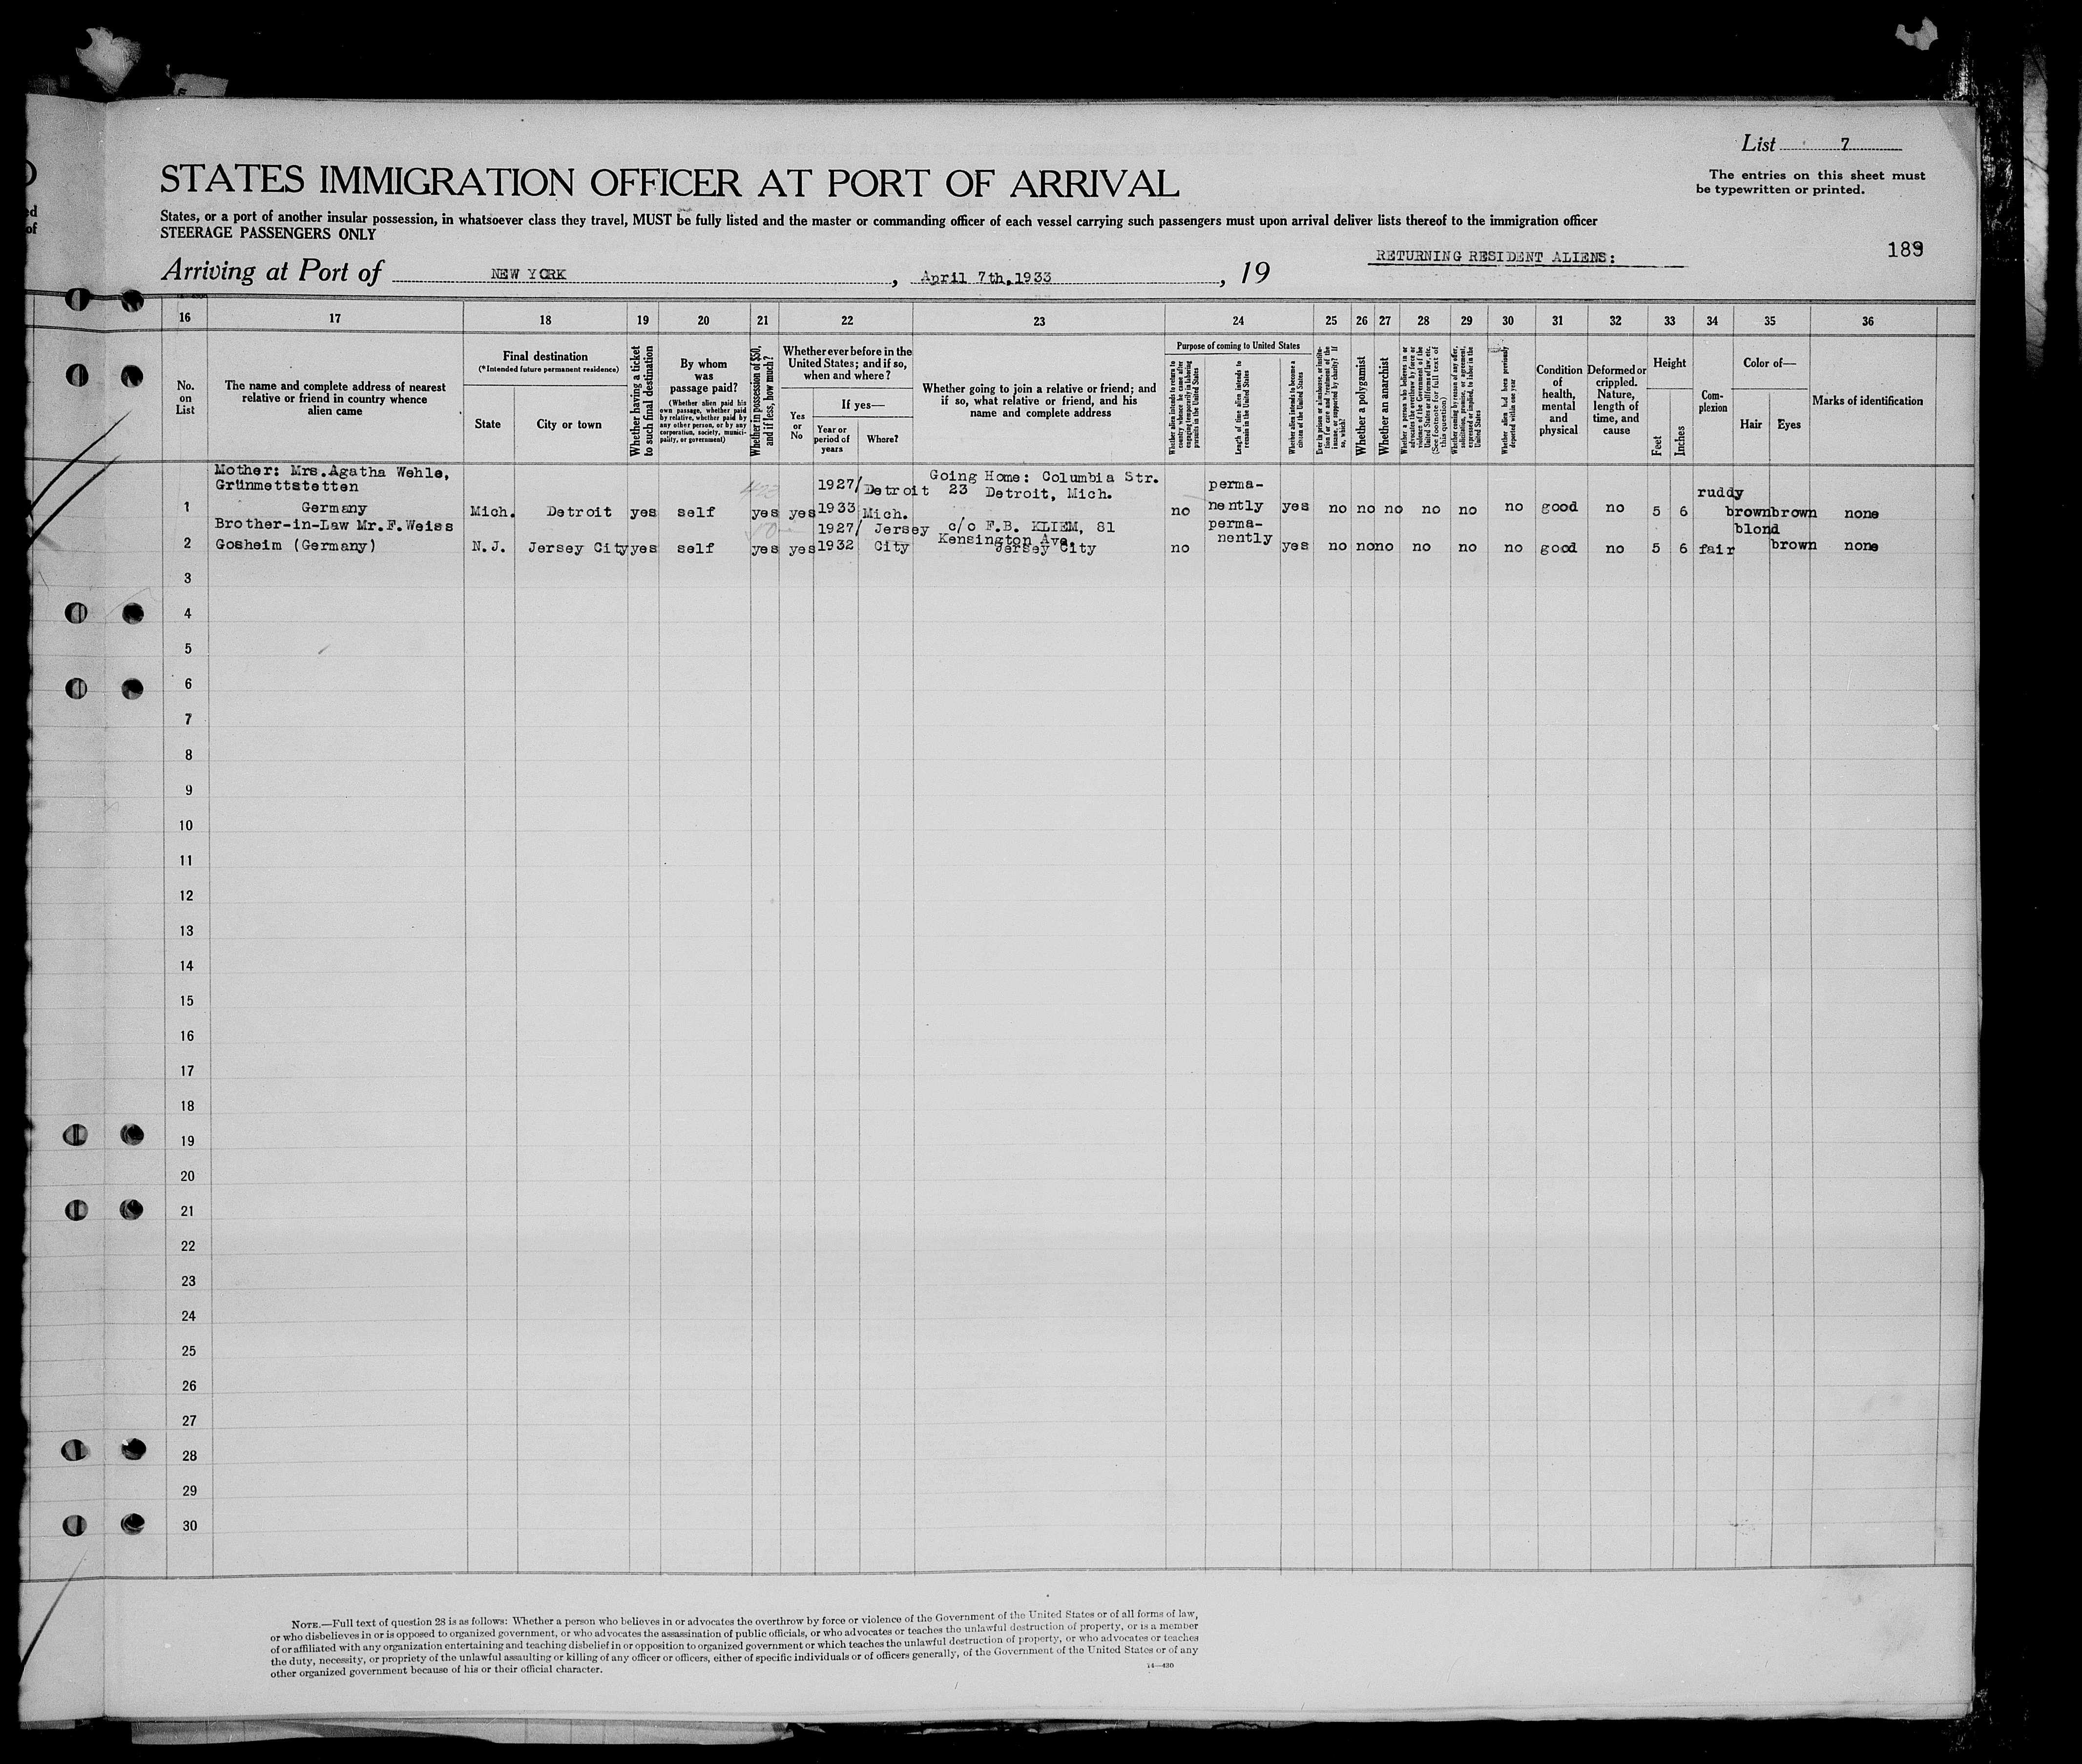 List 7
The entries on this sheet must
be typewritten or printed.
STATES IMMIGRATION OFFICER AT PORT OF ARRIVAL
States, or a port of another insular possession, in whatsoever class they travel, MUST be fully listed and the master or commanding officer of each vessel carrying such passengers must upon arrival deliver lists thereof to the immigration officer
STEERAGE PASSENGERS ONLY
RETURNING RESIDENT ALIENS:
189
Arriving at Port of NEW YORK, April 7th, 1933, 19
16 17 18 19 20 21 22 23 24 25 26 27 28 29 30 31 32 33 34 35 36
No.
on
List
The name and complete address of nearest
relative or friend in country whence
alien came
Final destination
(*Intended future permanent residence)
State
City or town
Whether having a ticket
to such final destination
By whom
was
passage paid?
(Whether alien paid his
own passage, whether paid
by relative, whether paid by
any other person, or by any
corporation, society, munici-
pality, or government)
Whether in possession of $50,
and if less, how much?
Whether ever before in the
United States; and if so,
when and where?
Yes
or
No
If yes—
Year or
period of
years
Where?
Whether going to join a relative or friend; and
if so, what relative or friend, and his
name and complete address
Purpose of coming to United States
Whether alien intends to return to
country whence he came after
engaging temporarily in laboring
pursuits in the United States
Length of time alien intends to
remain in the United States
Whether alien intends to become a
citizen of the United States
Ever in prison or almshouse, or institu-
tion for care and treatment of the
insane, or supported by charity? If
so, which?
Whether a polygamist
Whether an anarchist
Whether a person who believes in or
advocates the overthrow by force or
violence of the Government of the
United States or all forms of law, etc.
(See footnote for full text of
this question)
Whether coming by reason of any offer,
solicitation, promise, or agreement,
expressed or implied, to labor in the
United States
Whether alien had been previously
deported within one year
Condition
of
health,
mental
and
physical
Deformed or
crippled.
Nature,
length of
time, and
cause
Height
Feet
Inches
Com-
plexion
Color of—
Hair
Eyes
Marks of identification
Mother: Mrs. Agatha Wehle,
Grünmettstetten
Germany
1 Mich. Detroit yes self yes yes 1927/
1933 Detroit
Mich. Going Home: Columbia Str.
23 Detroit, Mich. no perma-
nently yes no no no no no no good no 5 6 ruddy brown brown none
Brother-in-Law Mr. F. Weiss
2 Gosheim (Germany) N.J. Jersey City yes self yes yes 1927/
1932 Jersey
City c/o F.B. KLIEM, 81
Kensington Ave.
Jersey City no perma-
nently yes no no no no no no good no 5 6 fair blond brown none
3
4
5
6
7
8
9
10
11
12
13
14
15
16
17
18
19
20
21
22
23
24
25
26
27
28
29
30
NOTE.—Full text of question 28 is as follows: Whether a person who believes in or advocates the overthrow by force or violence of the Government of the United States or of all forms of law,
or who disbelieves in or is opposed to organized government, or who advocates the assassination of public officials, or who advocates or teaches the unlawful destruction of property, or is a member
of or affiliated with any organization entertaining and teaching disbelief in or opposition to organized government or which teaches the unlawful destruction of property, or who advocates or teaches
the duty, necessity, or propriety of the unlawful assaulting or killing of any officer or officers, either of specific individuals or of officers generally, of the Government of the United States or of any
other organized government because of his or their official character.
14—430